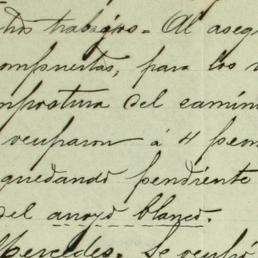 trabajos - Al aseg
ompuertas, para los
mpostura del camin
ocuparon á 4 peon
quedando pendiente
del arroyo blanco.
Mercedes. Se ocupó